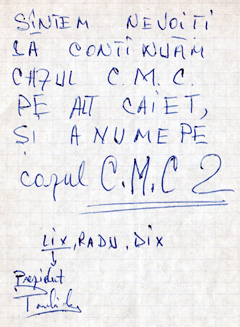 SÎNTEM NEVOIȚI
SA CONTINUĂM
CAZUL C.M.C.
PE ALT CAIET,
ȘI ANUME PE
cazul C.M.C 2
LIX, RADU, DIX
Prezident